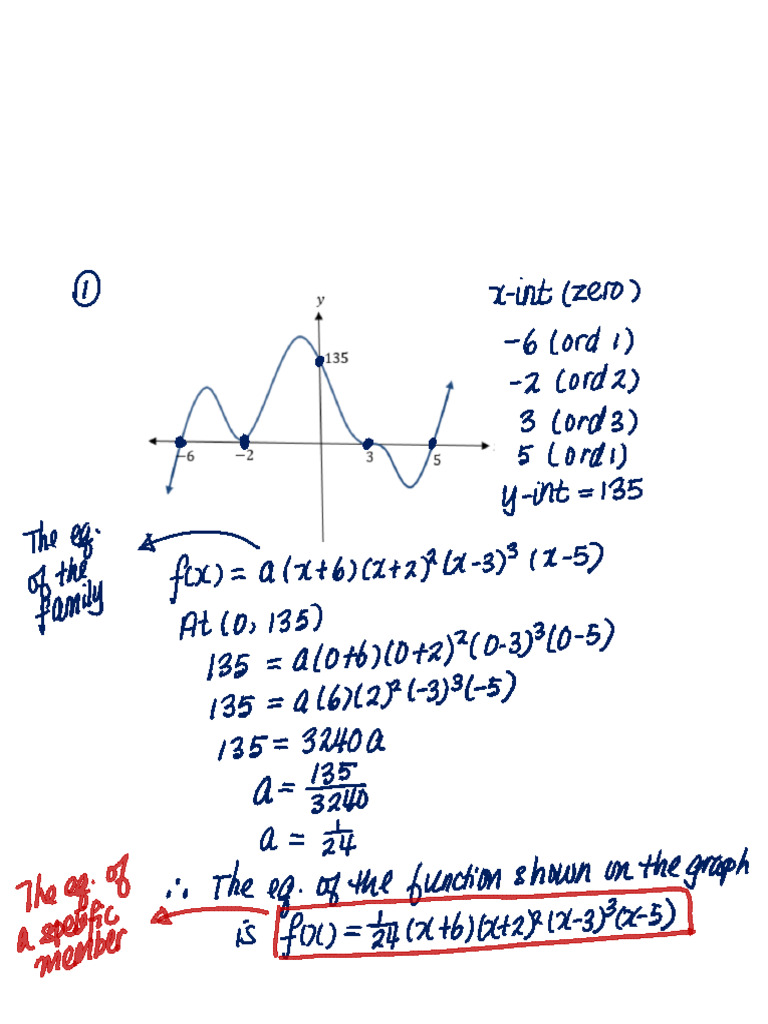 ①
y
135
−6
−2
3
5
x-int (zero)
-6 (ord 1)
-2 (ord 2)
3 (ord 3)
5 (ord 1)
y-int = 135
The eq.
of the
family
f(x) = a(x+6)(x+2)²(x-3)³ (x-5)
At (0, 135)
135 = a(0+6)(0+2)²(0-3)³(0-5)
135 = a(6)(2)²(-3)³(-5)
135 = 3240a
a = 135/3240
a = 1/24
∴ The eq. of the function shown on the graph
is f(x) = 1/24 (x+6)(x+2)²(x-3)³(x-5)
The eq. of
a specific
member